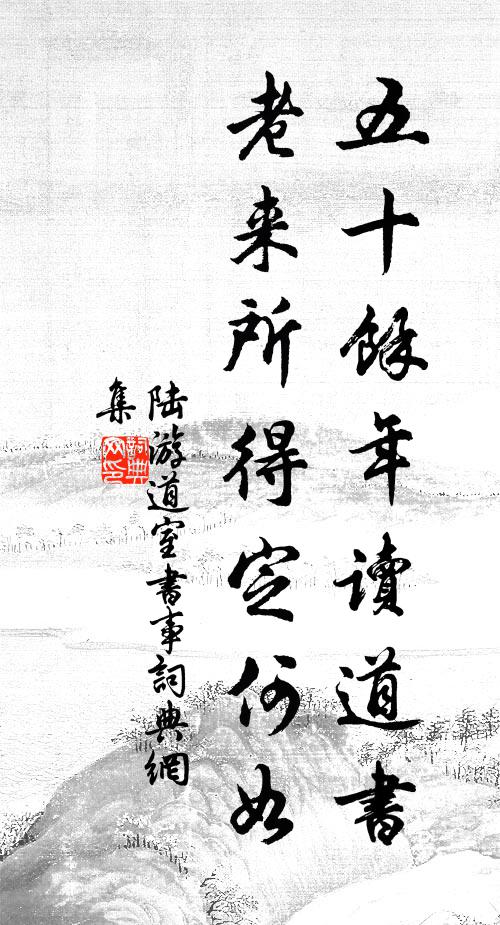 五十餘年讀道書
老来所得定何如
陆游道室書事詞典網
集
詞典网印